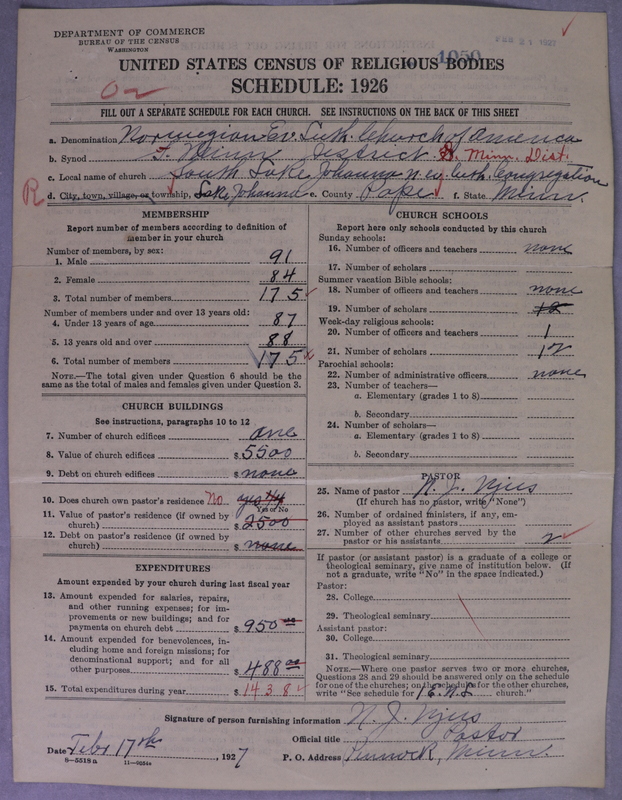 DEPARTMENT OF COMMERCE
BUREAU OF THE CENSUS
WASHINGTON
FEB 21 1927
UNITED STATES CENSUS OF RELIGIOUS BODIES
SCHEDULE: 1926
FILL OUT A SEPARATE SCHEDULE FOR EACH CHURCH. SEE INSTRUCTIONS ON THE BACK OF THIS SHEET
a. Denomination Norwegian Ev. Luth. Church of America
b. Synod District Minn. Dist.
c. Local name of church South Lake Johanna N. ev. Luth. Congregation
d. City, town, village, or township, Lake Johanna e. County Pope f. State Minn.
MEMBERSHIP
Report number of members according to definition of member in your church
Number of members, by sex:
1. Male 91
2. Female 84
3. Total number of members 175
Number of members under and over 13 years old:
4. Under 13 years of age 87
5. 13 years old and over 88
6. Total number of members 175
NOTE.—The total given under Question 6 should be the same as the total of males and females given under Question 3.
CHURCH BUILDINGS
See instructions, paragraphs 10 to 12
7. Number of church edifices one
8. Value of church edifices $ 5500
9. Debt on church edifices $ none
10. Does church own pastor's residence No
Yes or No
11. Value of pastor's residence (if owned by church) $ 2500
12. Debt on pastor's residence (if owned by church) $ none
EXPENDITURES
Amount expended by your church during last fiscal year
13. Amount expended for salaries, repairs, and other running expenses; for improvements or new buildings; and for payments on church debt $ 950 00
14. Amount expended for benevolences, including home and foreign missions; for denominational support; and for all other purposes $ 488 00
15. Total expenditures during year $ 1438
CHURCH SCHOOLS
Report here only schools conducted by this church
Sunday schools:
16. Number of officers and teachers none
17. Number of scholars
Summer vacation Bible schools:
18. Number of officers and teachers none
19. Number of scholars 12
Week-day religious schools:
20. Number of officers and teachers 1
21. Number of scholars 12
Parochial schools:
22. Number of administrative officers none
23. Number of teachers—
a. Elementary (grades 1 to 8)
b. Secondary
24. Number of scholars—
a. Elementary (grades 1 to 8)
b. Secondary
PASTOR
25. Name of pastor N. J. Njus
(If church has no pastor, write "None")
26. Number of ordained ministers, if any, employed as assistant pastors
27. Number of other churches served by the pastor or his assistants 2
If pastor (or assistant pastor) is a graduate of a college or theological seminary, give name of institution below. (If not a graduate, write "No" in the space indicated.)
Pastor:
28. College
29. Theological seminary
Assistant pastor:
30. College
31. Theological seminary
NOTE.—Where one pastor serves two or more churches, Questions 28 and 29 should be answered only on the schedule for one of the churches; on the schedule for the other churches, write "See schedule for church."
Signature of person furnishing information N. J. Njus
Official title Pastor
Date Feb. 17th, 1927
P. O. Address Pennock, Minn.
8—5518 a 11—9954